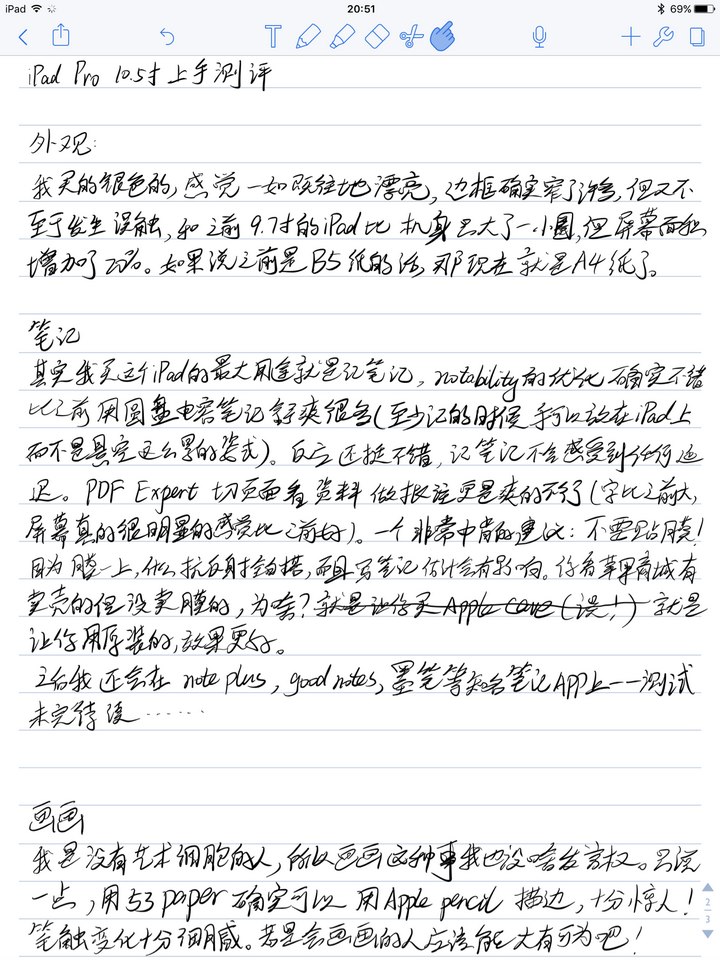 iPad
20:51
69%
iPad Pro 10.5寸上手测评
外观:
我买的银色的,感觉一如既往地漂亮,边框确实窄了许多,但又不
至于发生误触,和之前9.7寸的iPad比机身只大了一小圈,但屏幕面积
增加了20%。如果说之前是B5纸的话,那现在就是A4纸了。
笔记
其实我买这个iPad的最大用途就是记笔记,notability的优化确实不错
比之前用圆盘电容笔记舒爽很多(至少记的时候手可以放在iPad上
而不是悬空这么累的姿式)。反应还挺不错,记笔记不会感受到任何延
迟。PDF Expert 切页面看资料做批注更是爽的不行(字比之前大,
屏幕真的很明显的感觉比之前好)。一个非常中肯的建议:不要贴膜!
因为膜一上,什么抗反射全白搭,而且写笔记估计会有影响。你看苹果商城有
卖壳的但没卖膜的,为啥?就是让你买Apple care(误!)就是
让你用原装的,效果更好。
之后我还会在note plus,good notes,墨笔等知名笔记APP上一一测试
未完待续……
画画
我是没有艺术细胞的人,所以画画这种事我也没啥发言权。只说
一点,用53 paper确实可以用Apple pencil 描边,十分惊人!
笔触变化十分细腻。若是会画画的人应该能大有可为吧!
2
3